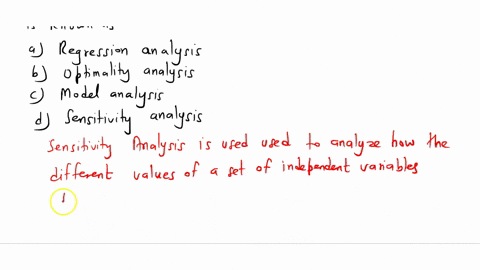 is known as
a) Regression analysis
b) Optimality analysis
c) Model analysis
d) Sensitivity analysis
Sensitivity Analysis is used used to analyze how the
different values of a set of independent variables